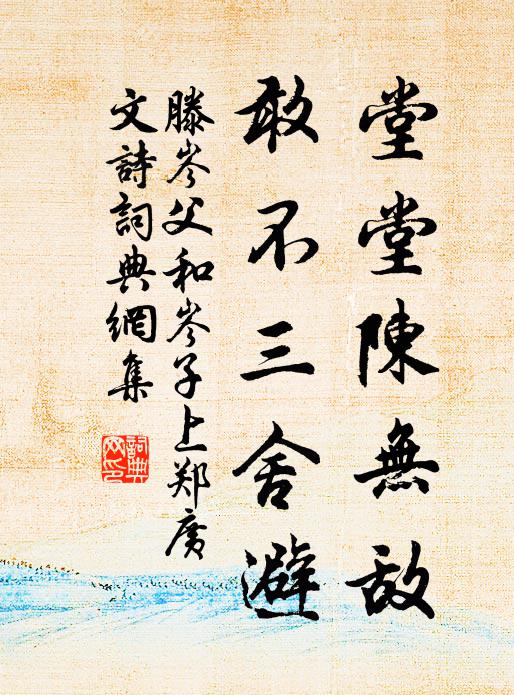 堂堂陳無敵
敢不三舍避
滕岑父和岑子上郑广
文詩詞典網集
詞典